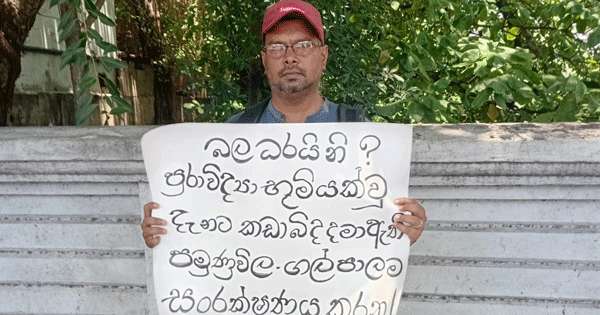 බල ධරයිනි ?
පුරාවිද්‍යා භූමියක්වූ
දැනට කඩාබිදදමාඇති
පමුණුවිල - ගල්පාලම
සංරක්ෂණය කරනු!